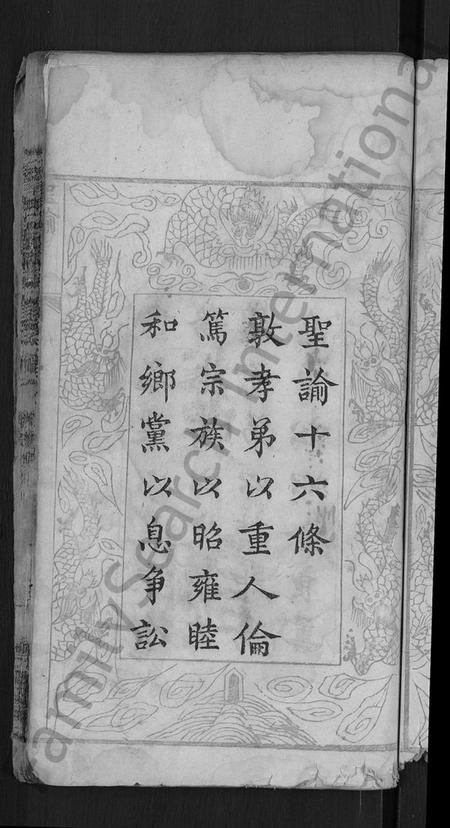 聖諭十六條
敦孝弟以重人倫
篤宗族以昭雍睦
和鄉黨以息爭訟
FamilySearch International